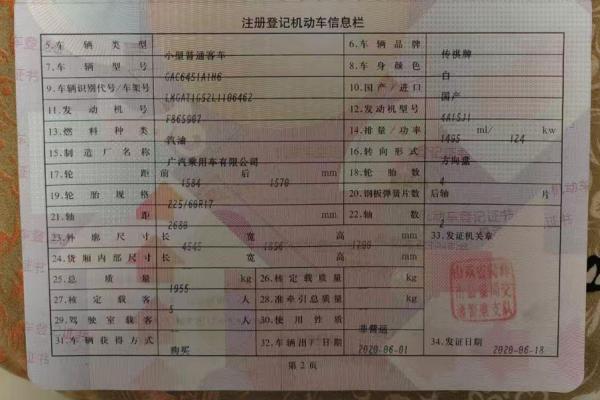 注册登记机动车信息栏
5.车辆类型 小型普通客车 6.车辆品牌 传祺牌
7.车辆型号 GAC6451A1H6 8.车身颜色 白
9.车辆识别代号/车架号 LMGAT1G52L1106462 10.国产/进口 国产
11.发动机号 F865907 12.发动机型号 4A15J1
13.燃料种类 汽油 14.排量/功率 1495 ml/ 124 kw
15.制造厂名称 广汽乘用车有限公司 16.转向形式 方向盘
17.轮距 前 1584 后 1570 mm 18.轮胎数 4
19.轮胎规格 225/60R17 20.钢板弹簧片数 后轴 片
21.轴距 2680 mm 22.轴数
23.外廓尺寸 长 4545 宽 1856 高 1700 mm 33.发证机关章
24.货厢内部尺寸 长 宽 高 mm
25.总质量 1955 kg 26.核定载质量 kg
27.核定载客 5 人 28.准牵引总质量 kg
29.驾驶室载客 人 30.使用性质 非营运
31.车辆获得方式 购买 32.车辆出厂日期 2020-06-01 34.发证日期 2020-06-18
第2页